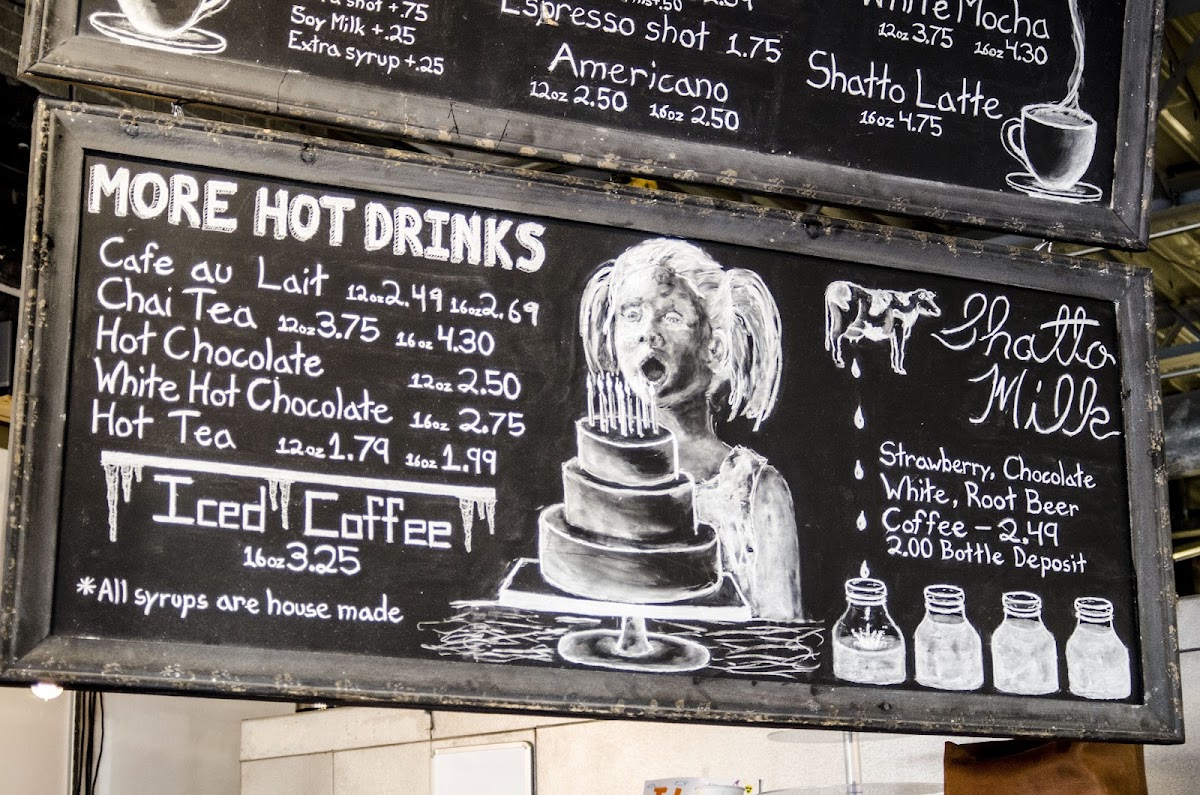 shot +.75
Soy Milk +.25
Extra syrup +.25
Espresso shot 1.75
Americano
12oz 2.50 16oz 2.50
White Mocha
12oz 3.75 16oz 4.30
Shatto Latte
16oz 4.75
MORE HOT DRINKS
Cafe au Lait 12oz 2.49 16oz 2.69
Chai Tea 12oz 3.75 16oz 4.30
Hot Chocolate 12oz 2.50
White Hot Chocolate 16oz 2.75
Hot Tea 12oz 1.79 16oz 1.99
Iced Coffee
16oz 3.25
*All syrups are house made
Shatto
Milk
Strawberry, Chocolate
White, Root Beer
Coffee - 2.49
2.00 Bottle Deposit